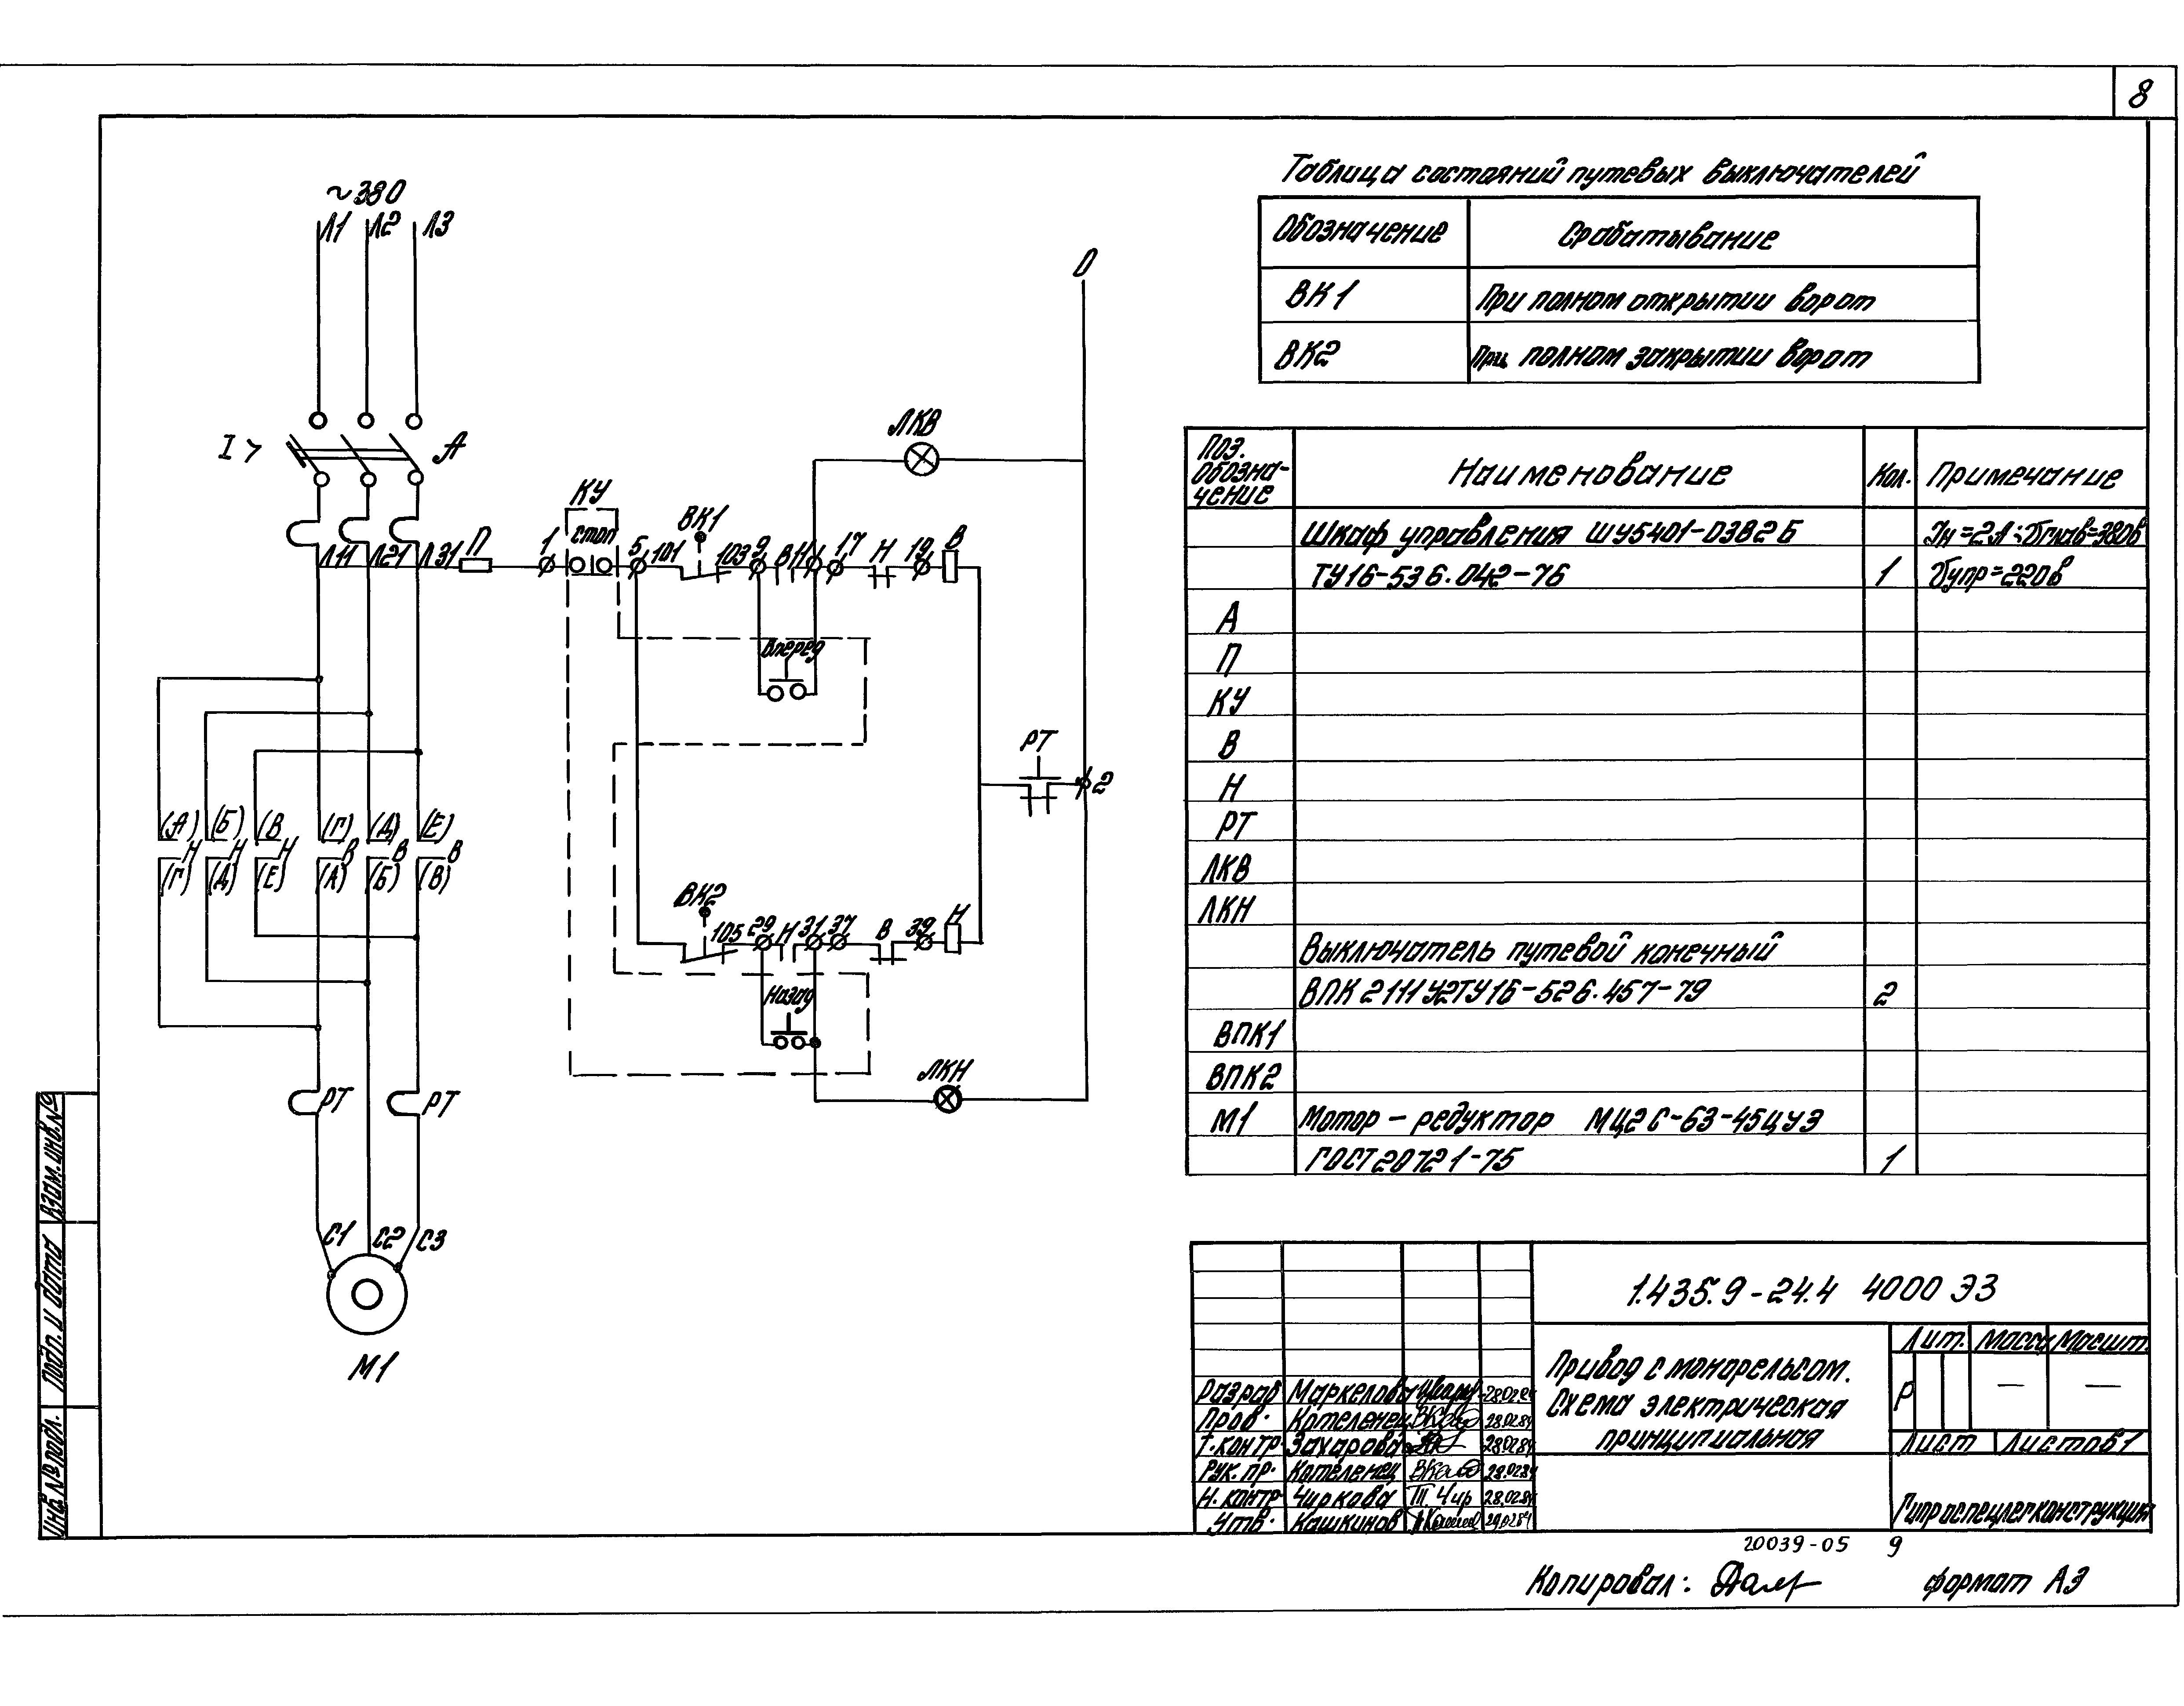 8
~380
Л1 Л2 Л3
0
I > А
Л11 Л21 Л31 П 1 КУ Стоп 5 101 ВК1 103 9 В 11 17 Н 19 В
ЛКВ
Вперед
РТ 2
(А) (Б) (В (Г) (Д) (Е)
Н Н Н В В В
(Г) (Д) (Е) (А) (Б) (В)
ВК2 105 29 Н 31 37 В 39 Н
Назад
ЛКН
РТ РТ
С1 С2 С3
М1
Таблица состояний путевых выключателей
Обозначение Срабатывание
ВК1 При полном открытии ворот
ВК2 При полном закрытии ворот
Поз. обозна-чение Наименование Кол. Примечание
Шкаф управления ШУ5401-0382Б Iн=2А; Uглав=380в
ТУ16-536.042-76 1 Uупр=220в
А
П
КУ
В
Н
РТ
ЛКВ
ЛКН
Выключатель путевой конечный
ВПК 2111У2ТУ16-526.457-79 2
ВПК1
ВПК2
М1 Мотор-редуктор МЦ2С-63-45ЦУ3
ГОСТ20721-75 1
1.435.9-24.4 4000 Э3
Привод с монорельсом.
Схема электрическая
принципиальная
Лит. Масса Масшт.
Р — —
Лист Листов 1
Гипроспецлегконструкция
Разраб Маркелова 28.02.84
Пров. Котеленец 28.02.84
Т.контр. Захарова 28.02.84
Рук. пр. Котеленец 28.02.84
Н. контр. Чиркова 28.02.84
Утв. Кашкинов 29.02.84
Взам. инв. №
Подп. и дата
Инв. № подл.
20039-05 9
Копировал: формат А3